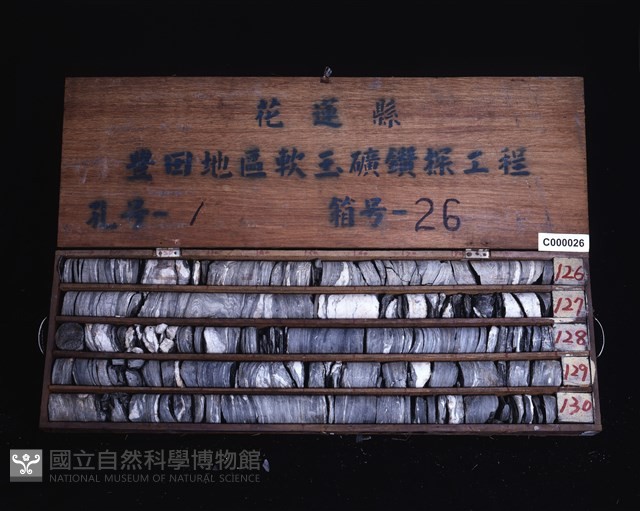 花蓮縣
豐田地區軟玉礦鑽探工程
孔号-1 箱号-26
C000026
126
127
128
129
130
國立自然科學博物館
NATIONAL MUSEUM OF NATURAL SCIENCE